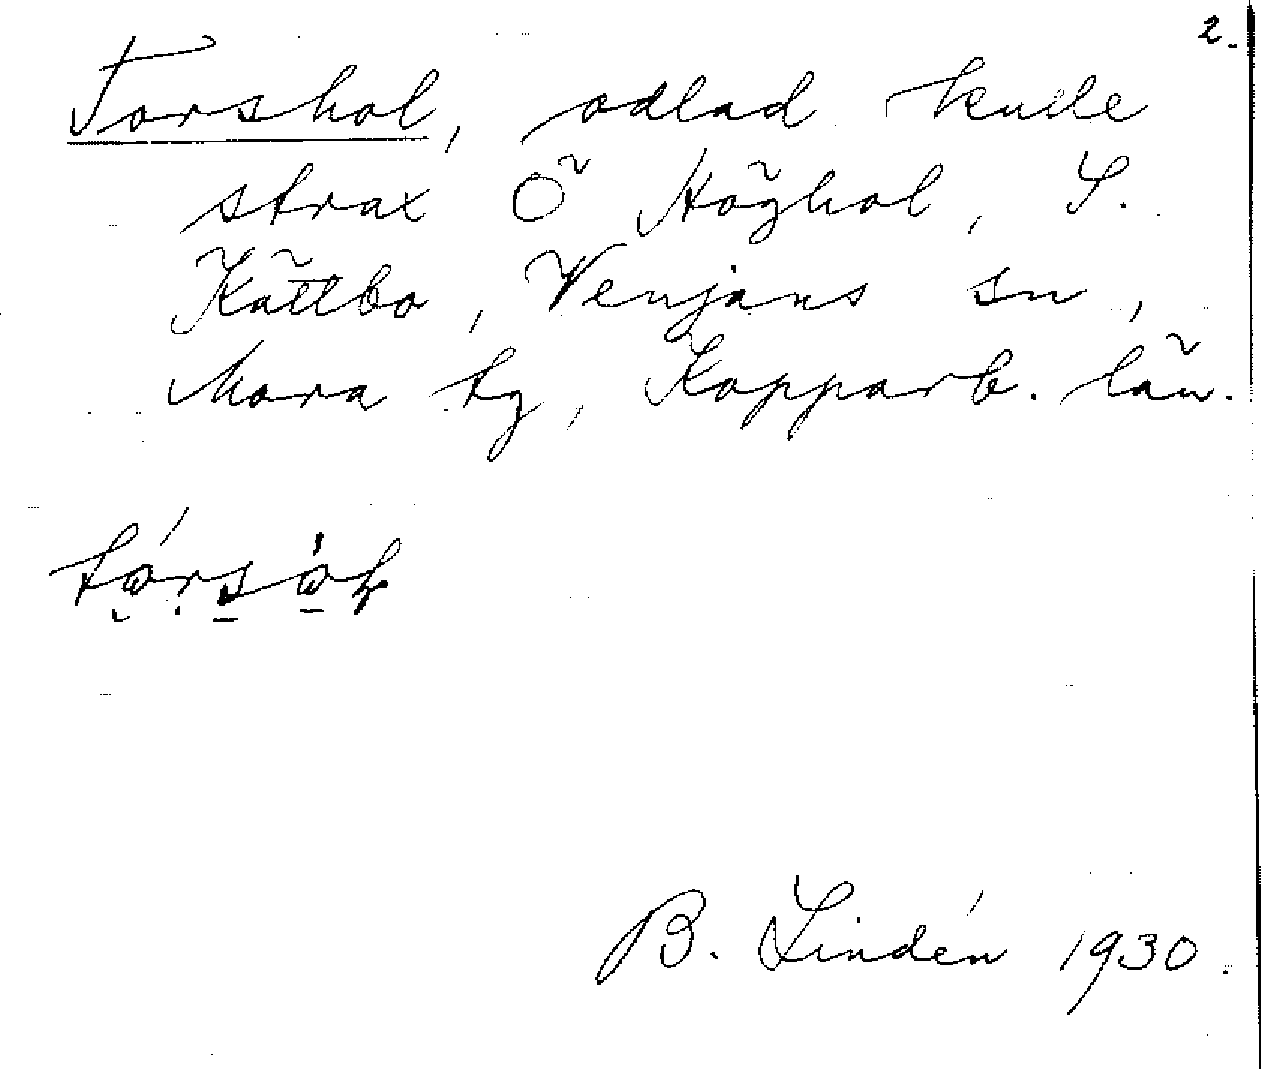 2.
Torshol, odlad kulle
strax Ö Höghol, S.
Kättbo, Venjans sn,
Mora tg, Kopparb. län.
B. Lindén 1930.